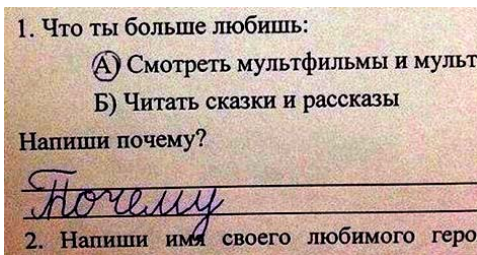 1. Что ты больше любишь:
А) Смотреть мультфильмы и мульт
Б) Читать сказки и рассказы
Напиши почему?
Почему
2. Напиши имя своего любимого геро